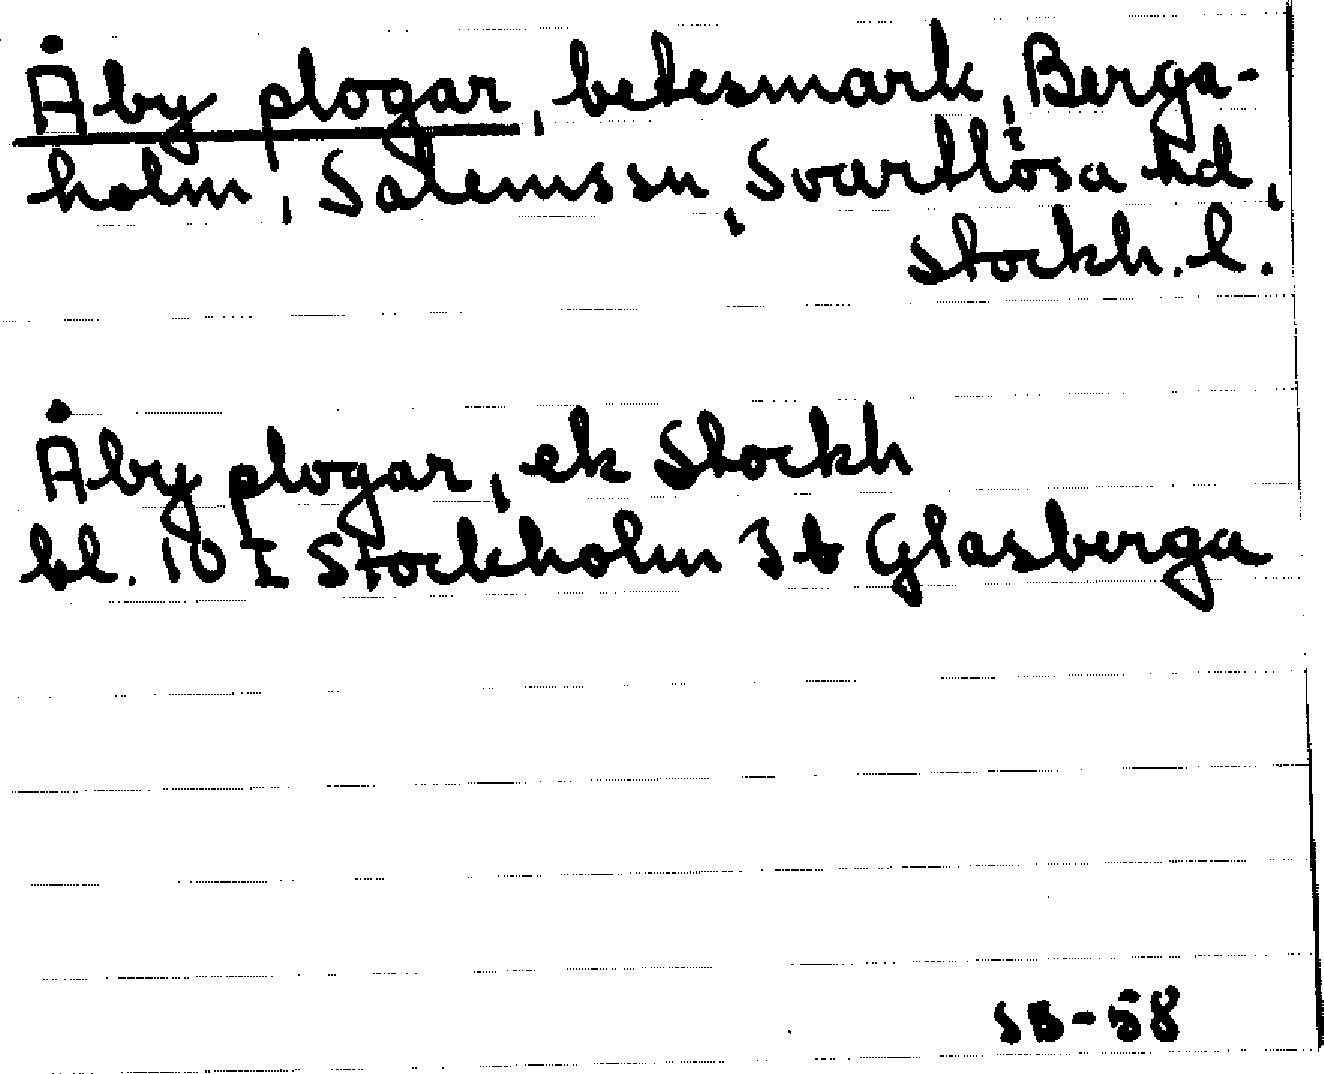 Åby plogar, betesmark, Berga-
holm, Salems sn, Svartlösa hd,
Stockh. l.
Åby plogar, ek Stockh
bl. 10 I Stockholm 3 b Glasberga
SB-58